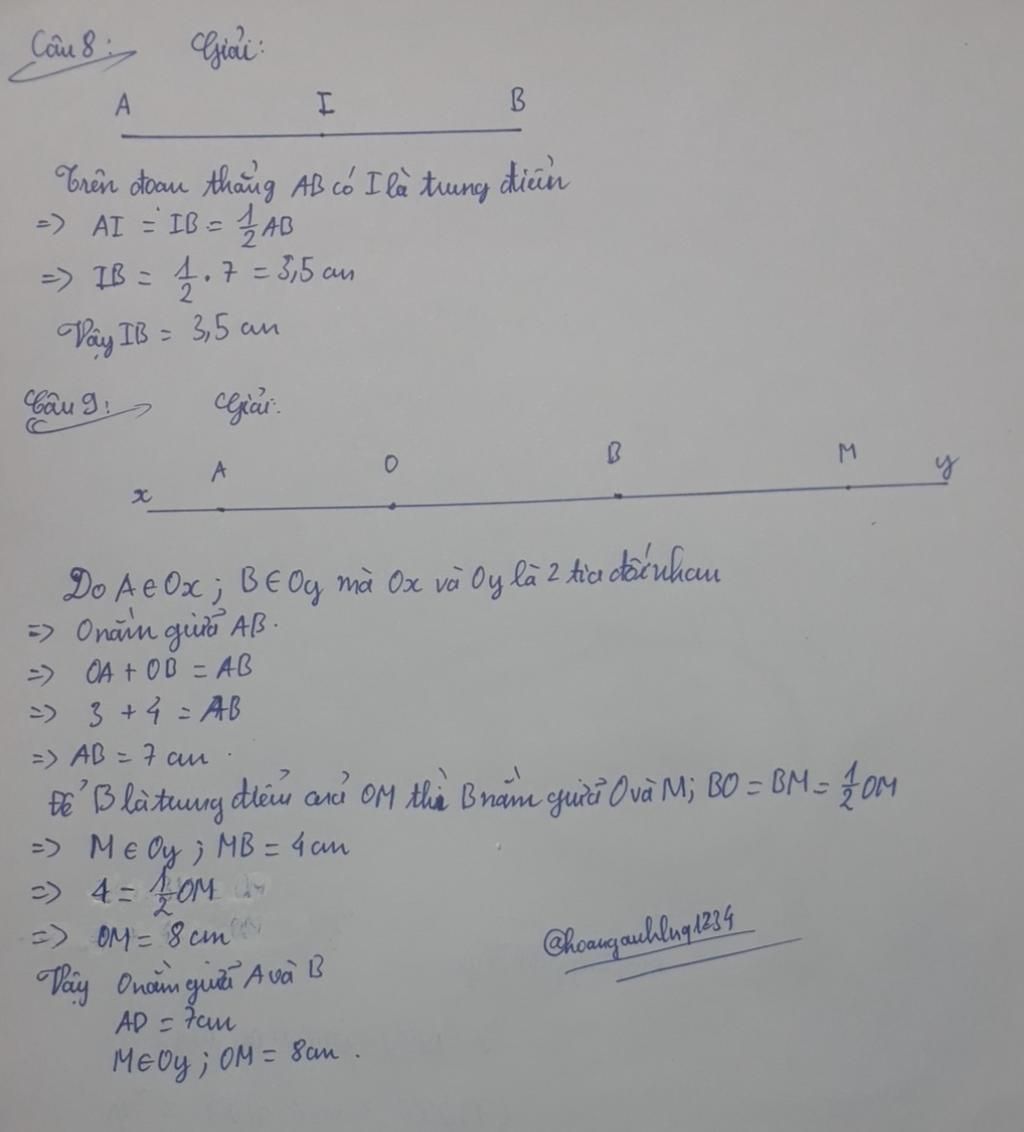 Câu 8: Giải:
A I B
Trên đoan thẳng AB có I là trung điểm
=> AI = IB = 1/2 AB
=> IB = 1/2 . 7 = 3,5 cm
Vậy IB = 3,5 cm
Câu 9: Giải:
x A O B M y
Do A ∈ Ox ; B ∈ Oy mà Ox và Oy là 2 tia đối nhau
=> O nằm giữa AB.
=> OA + OB = AB
=> 3 + 4 = AB
=> AB = 7 cm .
Để B là trung điểm của OM thì B nằm giữa O và M; BO = BM = 1/2 OM
=> M ∈ Oy ; MB = 4 cm
=> 4 = 1/2 OM
=> OM = 8 cm
Vậy O nằm giữa A và B
AD = 7cm
M ∈ Oy ; OM = 8cm .
@hoanganhlng1234